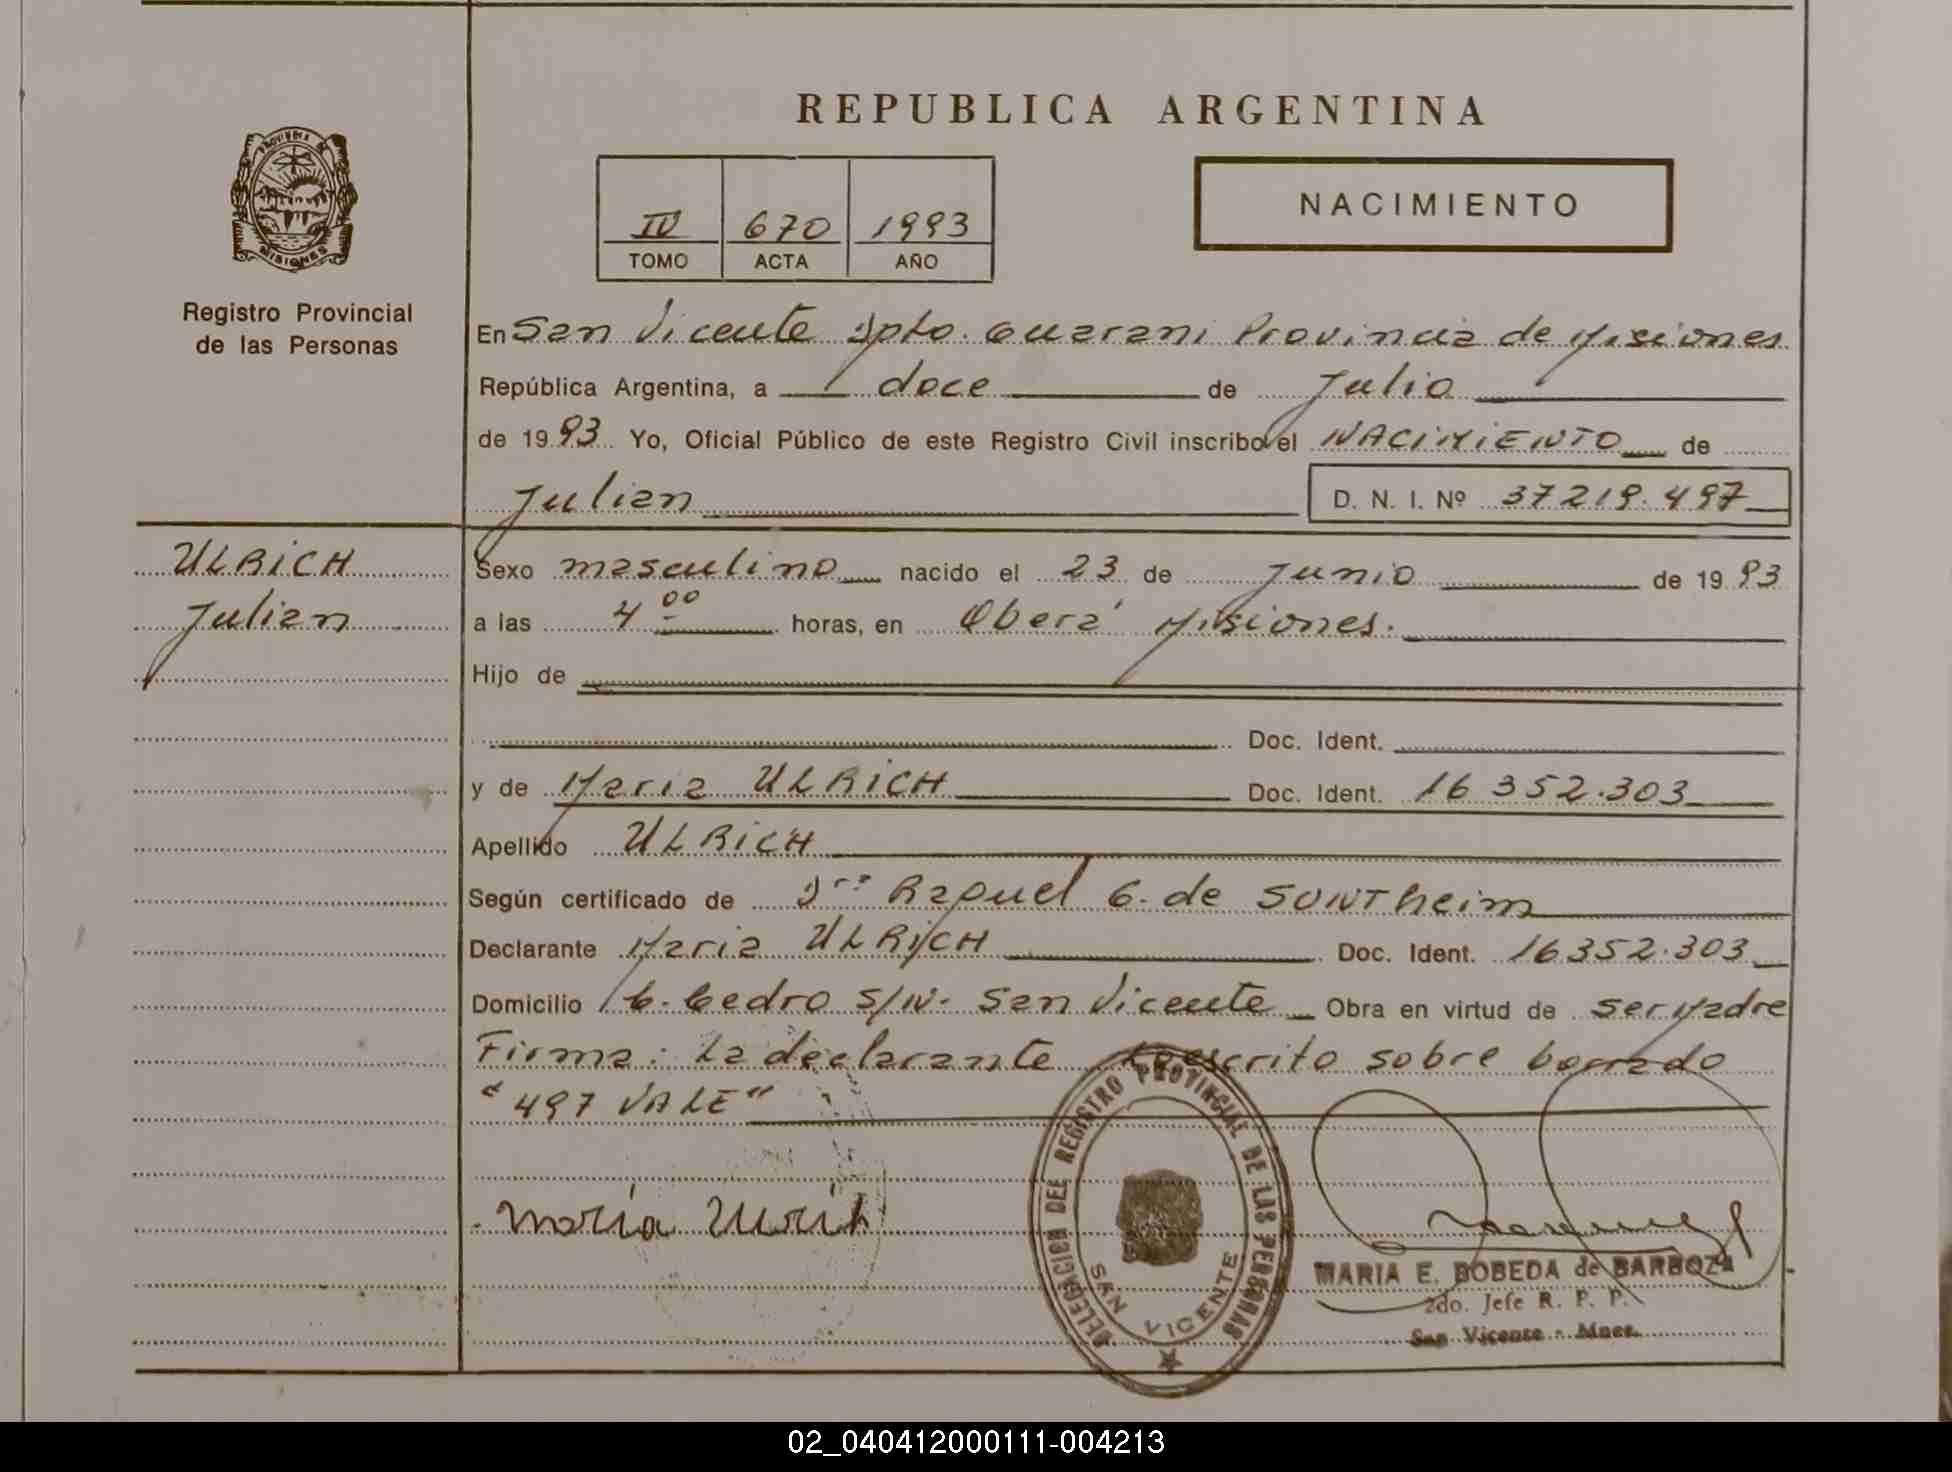 REPUBLICA ARGENTINA
PROVINCIA DE MISIONES
Registro Provincial
de las Personas
IV 670 1993
TOMO ACTA AÑO
NACIMIENTO
En San Vicente Dpto. Guarani Provincia de Misiones
República Argentina, a doce de Julio
de 1993 Yo, Oficial Público de este Registro Civil inscribo el NACIMIENTO de
Julian D. N. I. Nº 37219.497
ULRICH
Julian
Sexo masculino nacido el 23 de Junio de 1993
a las 4 00 horas, en Oberá Misiones.
Hijo de
Doc. Ident.
y de Maria ULRICH Doc. Ident. 16 352.303
Apellido ULRICH
Según certificado de Dra Raquel G. de SUNTheim
Declarante Maria ULRICH Doc. Ident. 16352.303
Domicilio B. Cedro S/N- San Vicente Obra en virtud de ser Madre
Firma: La declarante Lo escrito sobre borrado
"497 VALE"
María Ulrich
DELEGACION DEL REGISTRO PROVINCIAL DE LAS PERSONAS
SAN VICENTE
MARIA E. BOBEDA de BARBOZA
2do. Jefe R. P. P.
San Vicente - Mnes.
02_040412000111-004213